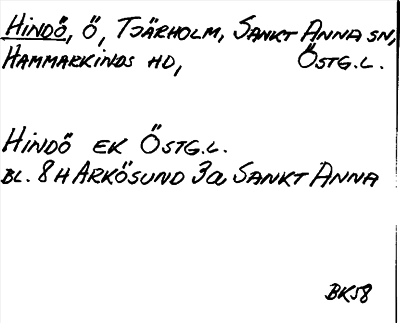 HINDÖ, Ö, TJÄRHOLM, SANKT ANNA SN,
HAMMARKINDS HD, ÖSTG.L.
HINDÖ EK ÖSTG.L.
BL. 8 H ARKÖSUND 3a SANKT ANNA
BK58